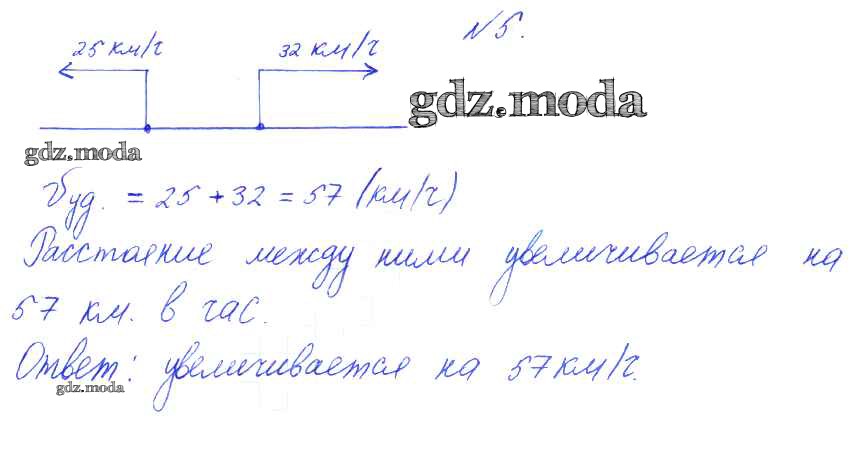 25 км/ч 32 км/ч №5.
gdz.moda
gdz.moda
Vуд. = 25 + 32 = 57 (км/ч)
Расстояние между ними увеличивается на
57 км. в час.
Ответ: увеличивается на 57 км/ч.
gdz.moda